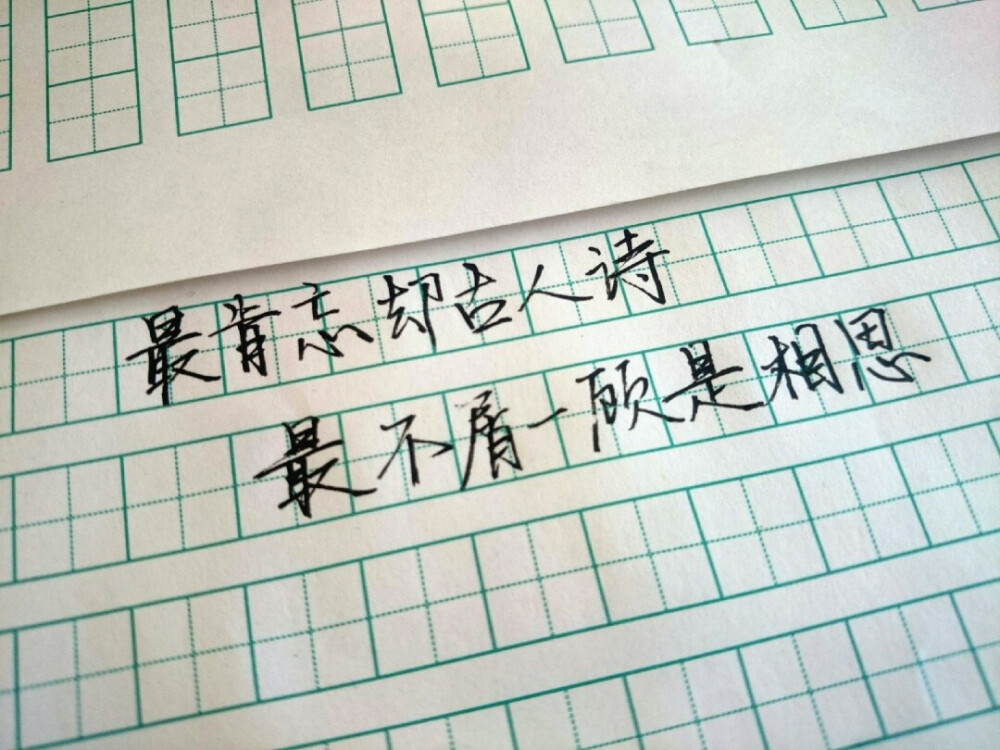 最肯忘却古人诗
最不屑一顾是相思